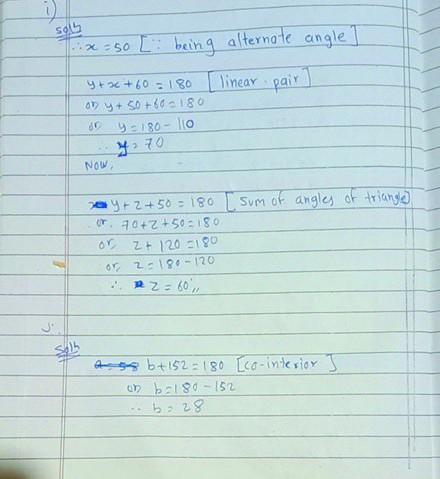 i)
Soln
∴ x = 50 [∵ being alternate angle]
y + x + 60 = 180 [linear pair]
or y + 50 + 60 = 180
or y = 180 - 110
∴ y = 70
Now,
y + z + 50 = 180 [Sum of angles of triangle]
or, 70 + z + 50 = 180
or, z + 120 = 180
or, z = 180 - 120
∴ z = 60°,,
Soln
b + 152 = 180 [co-interior]
or b = 180 - 152
∴ b = 28